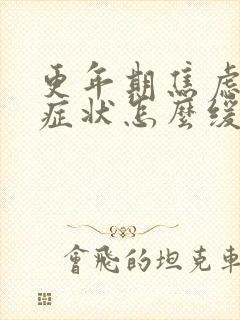 更年期焦虑
症状怎麽缓
會飛的坦克車